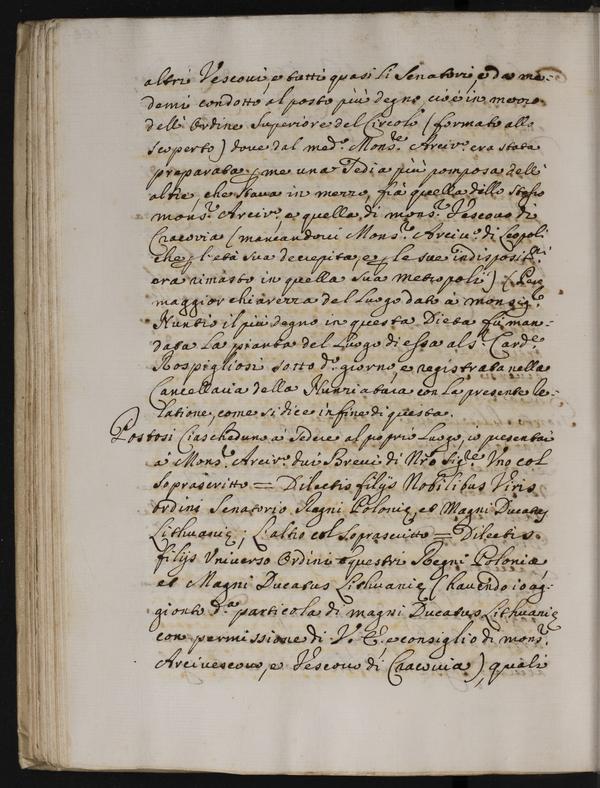 altri Vescoui, e tutti quasi li Senatori e da me-
demi condotto al posto più degno, cioè in mezzo
dell' Ordine Superiore del Circolo (formato allo
scoperto) doue dal med.º Mons.re Arciv.º era stata
preparata per me una Sedia più pomposa dell'
altre che staua in mezzo, frà quella dello stesso
mons.r Arciv.º, e quella di mons.r Vescouo di
Cracovia (mancandoui Mons.r Arciu.º di Leopoli
che per l'età sua decrepita, e per le sue indispositi.ni
era rimasto in quella sua metropoli) (Per
maggior chiarezza del Luogo dato à monsig.r
Nuntio il più degno in questa Dieta fù man-
data la pianta del Luogo di essa al s.r Card.le
Rospigliosi sotto d.º giorno, e registrata nella
Cancellaria della Nunziatura con la presente re-
latione, come si dice in fine di questa.
Postosi Ciascheduno à Sedere al proprio Luogo, io presentai
à Mons.r Arciv.º dui Breui di N'ro Sig.re Vno col
soprascritto = Dilectis filijs Nobilibus Viris
ordinis Senatorio Regni Polonię, et Magni Ducatus
Lithuanię; L'altro col soprascritto = Dilectis
filijs Vniverso Ordini equestri Regni Polonię
et Magni Ducatus Lithuanię (hauendo io ag-
gionto d.ª particola di magni Ducatus Lithuanię
con permissione di V. E. e consiglio di mons.r
Arciuescouo, e Vescouo di Cracouia), quali